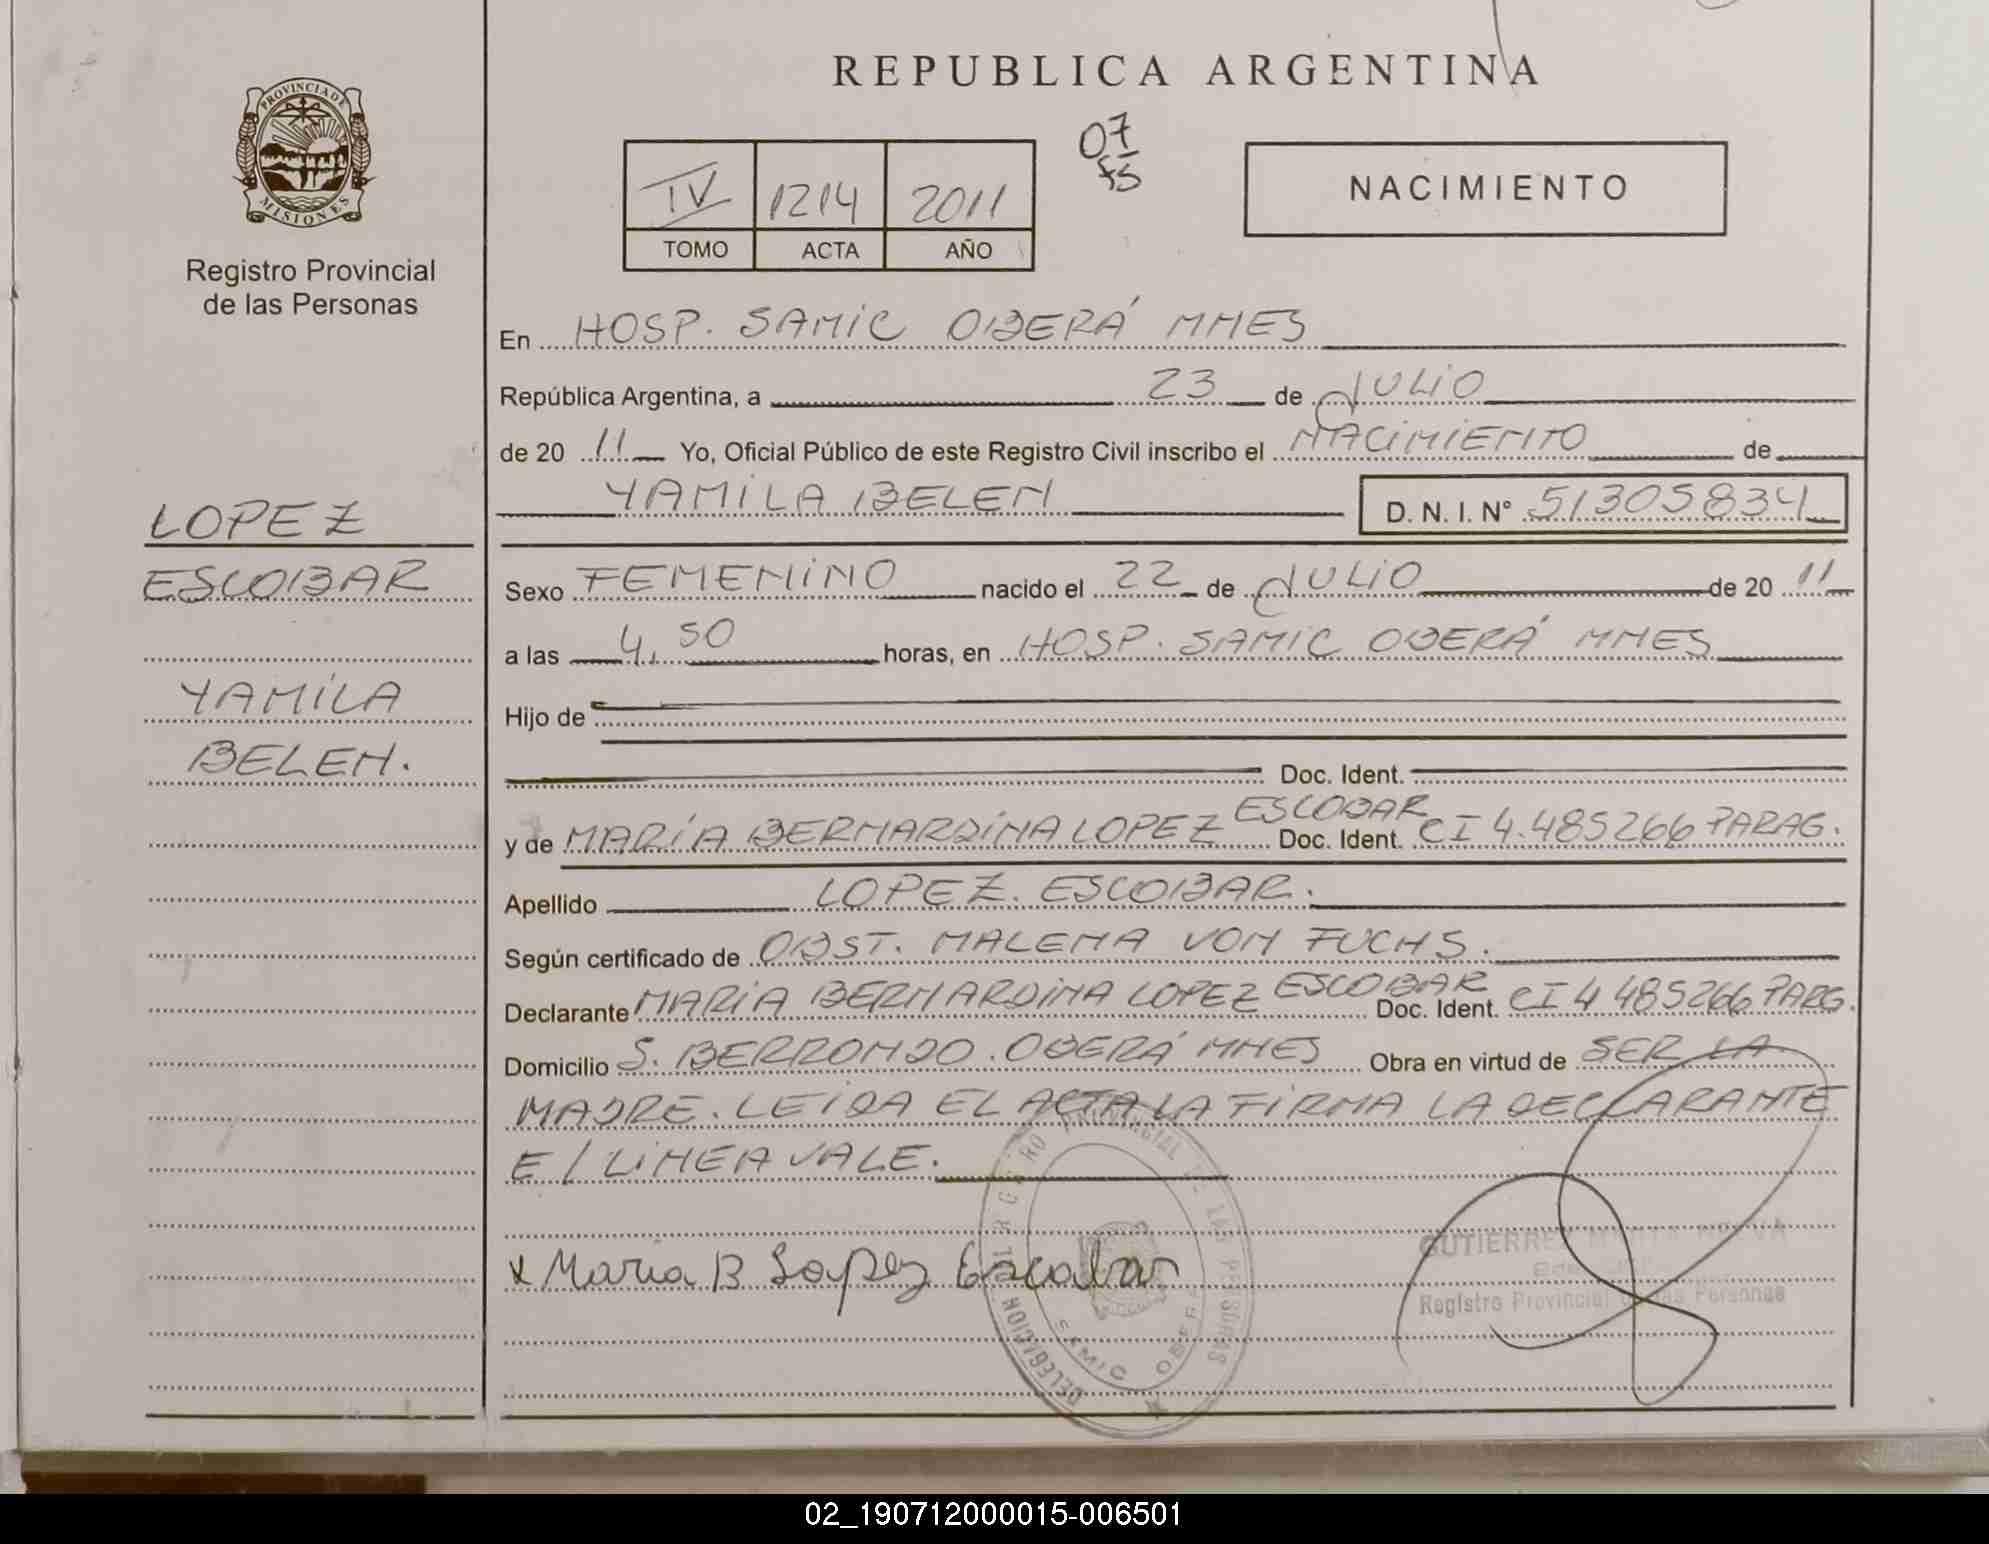 REPUBLICA ARGENTINA
PROVINCIA DE
MISIONES
Registro Provincial
de las Personas
07
fs
IV 1214 2011
TOMO ACTA AÑO
NACIMIENTO
LOPEZ
ESCOBAR
YAMILA
BELEN.
En HOSP. SAMIC OBERÁ MNES
República Argentina, a 23 de JULIO
de 20 11 Yo, Oficial Público de este Registro Civil inscribo el NACIMIENTO de
YAMILA BELEN D. N. I. N° 51305834
Sexo FEMENINO nacido el 22 de JULIO de 20 11
a las 4,50 horas, en HOSP. SAMIC OBERÁ MNES
Hijo de
Doc. Ident.
y de MARÍA BERNARDINA LOPEZ ESCOBAR Doc. Ident. CI 4.485266 PARAG.
Apellido LOPEZ. ESCOBAR.
Según certificado de OBST. MALENA VON FUCHS.
Declarante MARIA BERNARDINA LOPEZ ESCOBAR Doc. Ident. CI 4 485266 PARG.
Domicilio S. BERRONDO. OBERÁ MNES Obra en virtud de SER LA
MADRE. LEIDA EL ACTA LA FIRMA LA DECLARANTE
E/LINEA VALE.
x Maria B Lopez Escobar
REGISTRO PROVINCIAL DE LAS PERSONAS
DELEGACION
SAMIC OBERA
GUTIERREZ MARTA
Registro Provincial de las Personas
02_190712000015-006501